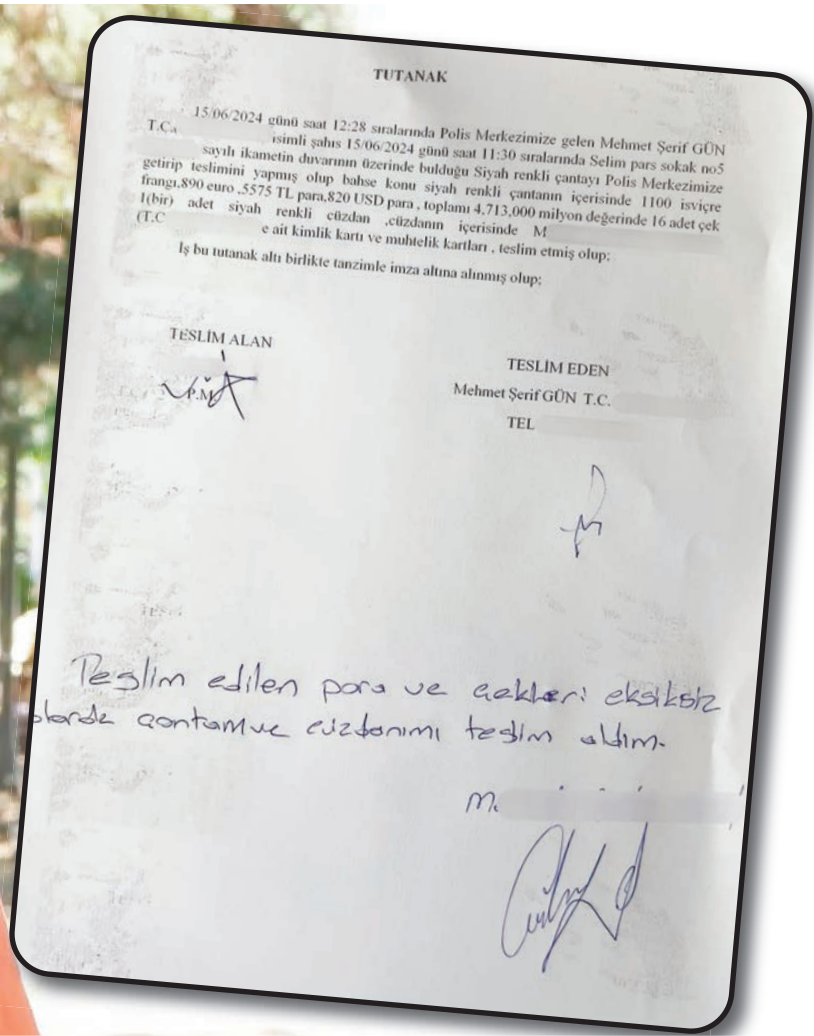 TUTANAK
15/06/2024 günü saat 12:28 sıralarında Polis Merkezimize gelen Mehmet Şerif GÜN
T.C. isimli şahıs 15/06/2024 günü saat 11:30 sıralarında Selim pars sokak no5
sayılı ikametin duvarının üzerinde bulduğu Siyah renkli çantayı Polis Merkezimize
getirip teslimini yapmış olup bahse konu siyah renkli çantanın içerisinde 1100 isviçre
frangı,890 euro ,5575 TL para,820 USD para , toplamı 4,713,000 milyon değerinde 16 adet çek
1(bir) adet siyah renkli cüzdan ,cüzdanın içerisinde M
(T.C e ait kimlik kartı ve muhtelik kartları , teslim etmiş olup;
İş bu tutanak altı birlikte tanzimle imza altına alınmış olup;
TESLİM ALAN
P.M
TESLİM EDEN
Mehmet Şerif GÜN T.C.
TEL
Teslim edilen para ve çekleri eksiksiz
olarak çantamı ve cüzdanımı teslim aldım.
M.